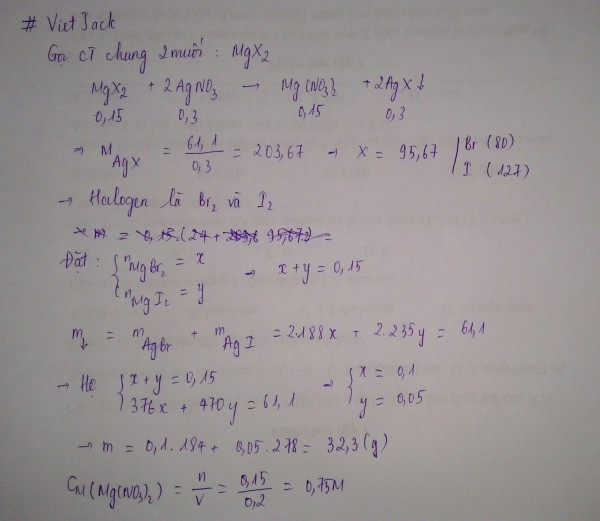 # VietJack
Gọi CT chung 2 muối : MgX₂
MgX₂ + 2AgNO₃ → Mg(NO₃)₂ + 2AgX↓
0,15 0,3 0,15 0,3
⇒ M_AgX = 61,1/0,3 = 203,67 → X = 95,67 | Br (80)
I (127)
→ Halogen là Br₂ và I₂
Đặt : { n_MgBr₂ = x → x + y = 0,15
n_MgI₂ = y
m↓ = m_AgBr + m_AgI = 2.188x + 2.235y = 61,1
→ Hệ { x + y = 0,15 → { x = 0,1
376x + 470y = 61,1 y = 0,05
→ m = 0,1.184 + 0,05.278 = 32,3 (g)
C_M (Mg(NO₃)₂) = n/V = 0,15/0,2 = 0,75M